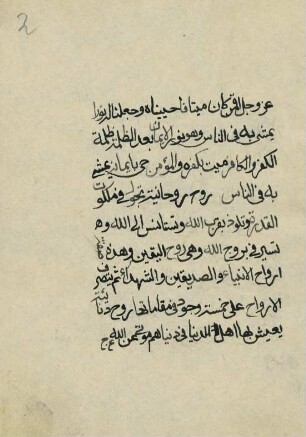 2
عز وجل افمن كان ميتا فاحييناه وجعلنا له نورا
يمشي به في الناس وهو نور الايمان بعد الظلمة ظلمة
الكفر والكافر ميت بكفره والمؤمن حي بايمانه يمشي
به في الناس روح روحانية تجول في ملكوت
القدرة وتلوذ بقرب الله وتستانس الى الله وهي
تسير في روح الله وهي روح اليقين وهذه
ارواح الانبياء والصديقين والشهداء ثم تتصرف
الارواح على خمسة وجوه في مقاماتها روح دنيائية
يعيش بها اهل الدنيا في دنياهم موتى من الله